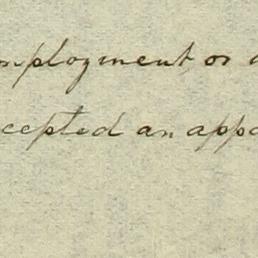 mployment, or a
ccepted an appo